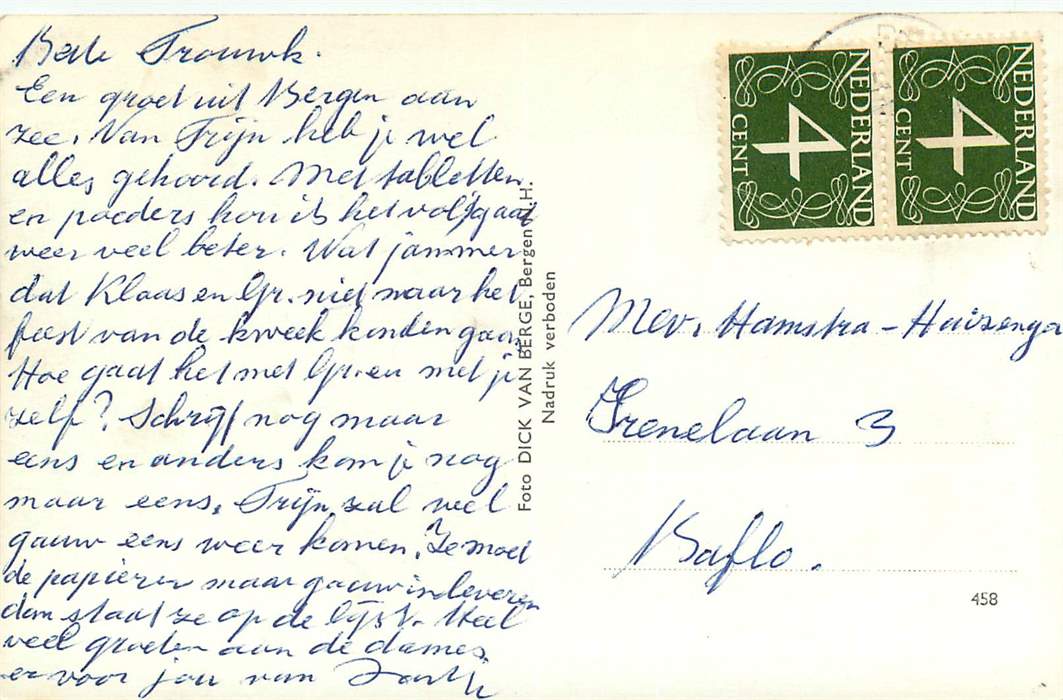 Beste Trouwk.
Een groet uit Bergen aan
zee. Van Trijn heb je wel
alles gehoord. Met tabletten
en poeders hou ik het vol, gaat
weer veel beter. Wat jammer
dat Klaas en Gr. niet naar het
feest van de kweek konden gaan
Hoe gaat het met Gr. en met je
zelf? Schrijf nog maar
eens en anders kom je nog
maar eens. Trijn zal wel
gauw eens weer komen. Ze moet
de papieren maar gauw inleveren
dan staat ze op de lijst. Heel
veel groeten aan de dames
en voor jou van
Foto DICK VAN BERGE, Bergen N.H.
Nadruk verboden
NEDERLAND
4
CENT
NEDERLAND
4
CENT
Mev. Hamstra - Huizenga
Irenelaan 3
Baflo.
458